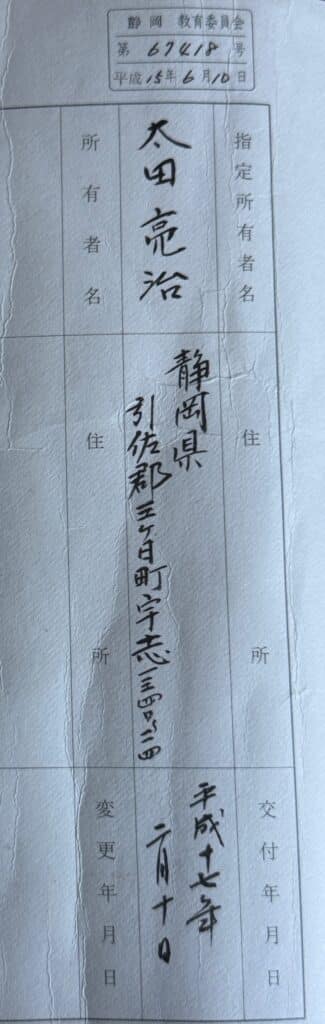 静岡 教育委員会
第 67418 号
平成 15年 6月 10日
指定所有者名
住所
交付年月日
太田亮治
静岡県
引佐郡三ヶ日町宇志
平成十七年
二月十日
所有者名
住所
変更年月日